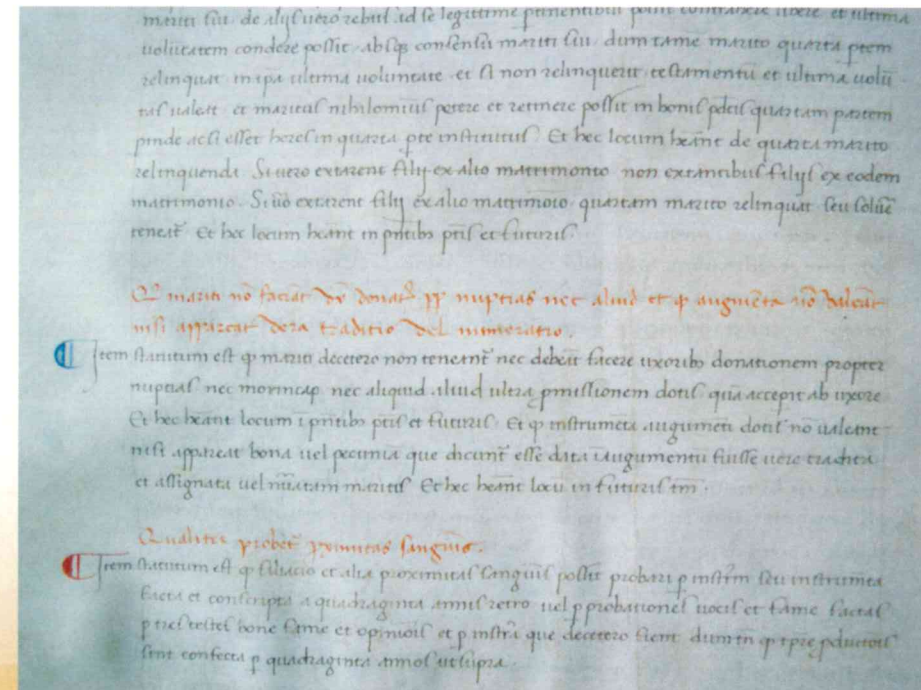 mariti sui. de alijs uero rebus ad se legittime pertinentibus possit contrahere libere et ultimā
uolūtatem condere possit. absqȝ consensu mariti sui. dum tamē marito quarta ptem
relinquat in ipā ultima uoluntate. et si non relinquerit. testamentū et ultima uolū
tas ualeat. et maritus nihilominus petere et retinere possit in bonis pdcis quartam partem
pinde ac si esset heres in quarta pte institutus. Et hec locum heānt de quarta marito
relinquendi. Si uero extarent filij ex alio matrimonio non extantibus filijs ex eodem
matrimonio. Si uō extarent filij ex alio matrimōio. quartam marito relinquat seu soluē
teneat̄. Et hec locum heānt in pn̄tibȝ ptis et futuris.
Q mariti nō faciāt donat pp nuptias nec aliud et ꝙ augmēta nō ualeāt
nisi appareat uera traditio uel numeratio.
Item statutum est ꝙ mariti decetero non teneant̄ nec debeāt facere uxoribȝ donationem propter
nuptias nec morincap. nec aliquid aliud ultra pmissionem dotis. quā accepit ab uxore.
Et hec heānt locum ī pn̄tibȝ ptis et futuris. Et ꝙ instrumēta augumēti dotis nō ualeant
nisi appareat bona uel pecunia que dicunt̄ esse data ī augumentū fuisse uere tradita
et assignata uel nūatam maritis. Et hec heānt locū in futuris tm̄.
Qualiter probet̄ pximitas sanguis.
Item statutum est ꝙ filiacio et alia proximitas sanguīs possit probari p instrm̄ seu instrumēta
facta et conscripta a quadraginta annis retro uel p probationes uocis et fame factas
p tres testes bone fame et opiniois et p instrā que decetero fient. dum tn̄ ꝙ tpre pductois
sint confecta p quadraginta annos ut supra.